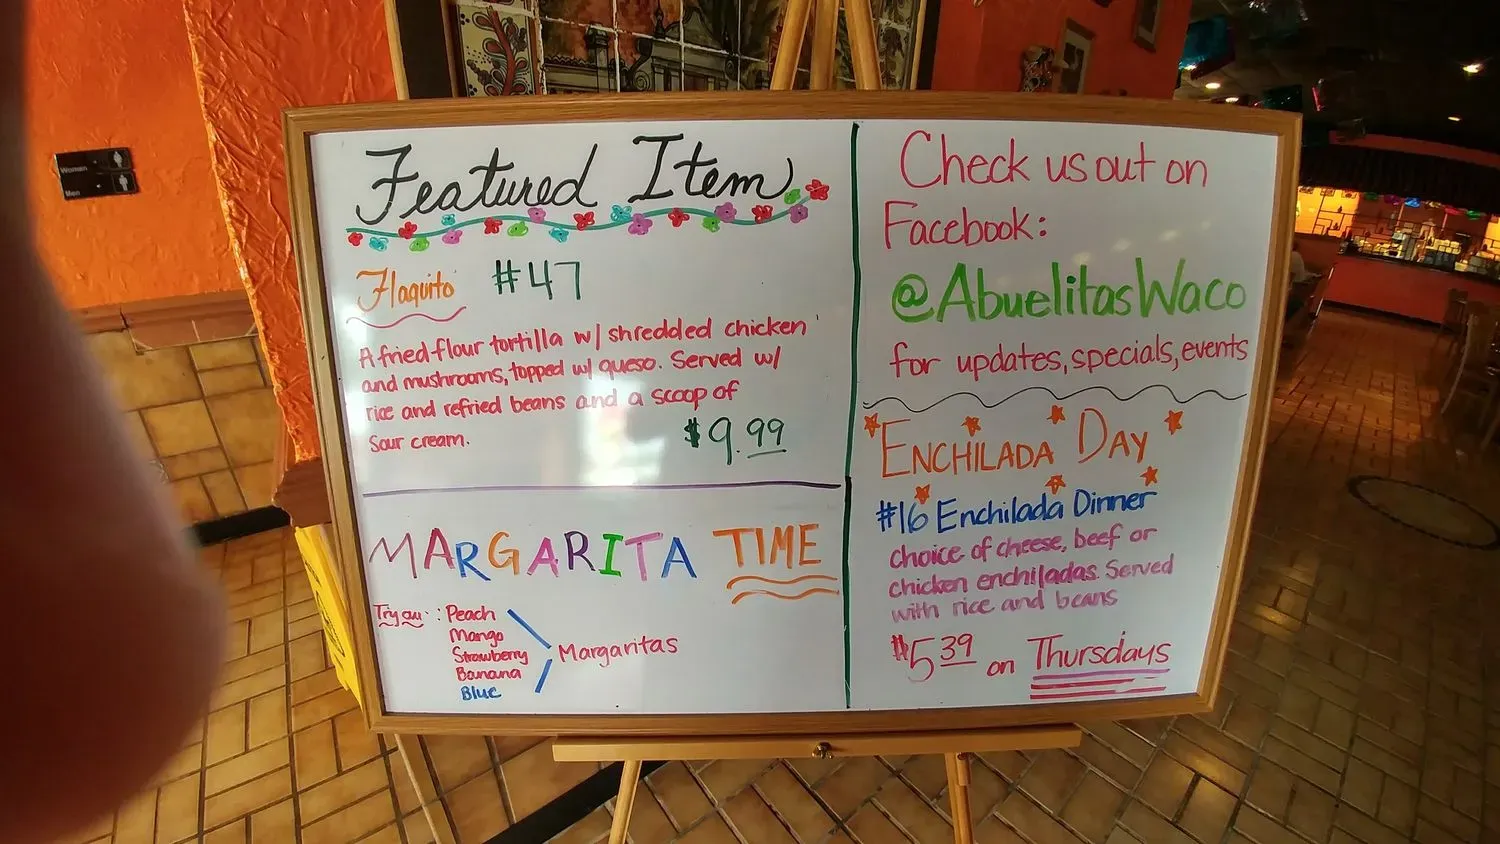 Women
Men
Featured Item
Flaquito #47
A fried flour tortilla w/ shredded chicken
and mushrooms, topped w/ queso. Served w/
rice and refried beans and a scoop of
sour cream.
$9.99
MARGARITA TIME
Try our: Peach
Mango
Strawberry
Banana
Blue
Margaritas
Check us out on
Facebook:
@AbuelitasWaco
for updates, specials, events
ENCHILADA DAY
#16 Enchilada Dinner
choice of cheese, beef or
chicken enchiladas. Served
with rice and beans
$5.39 on Thursdays